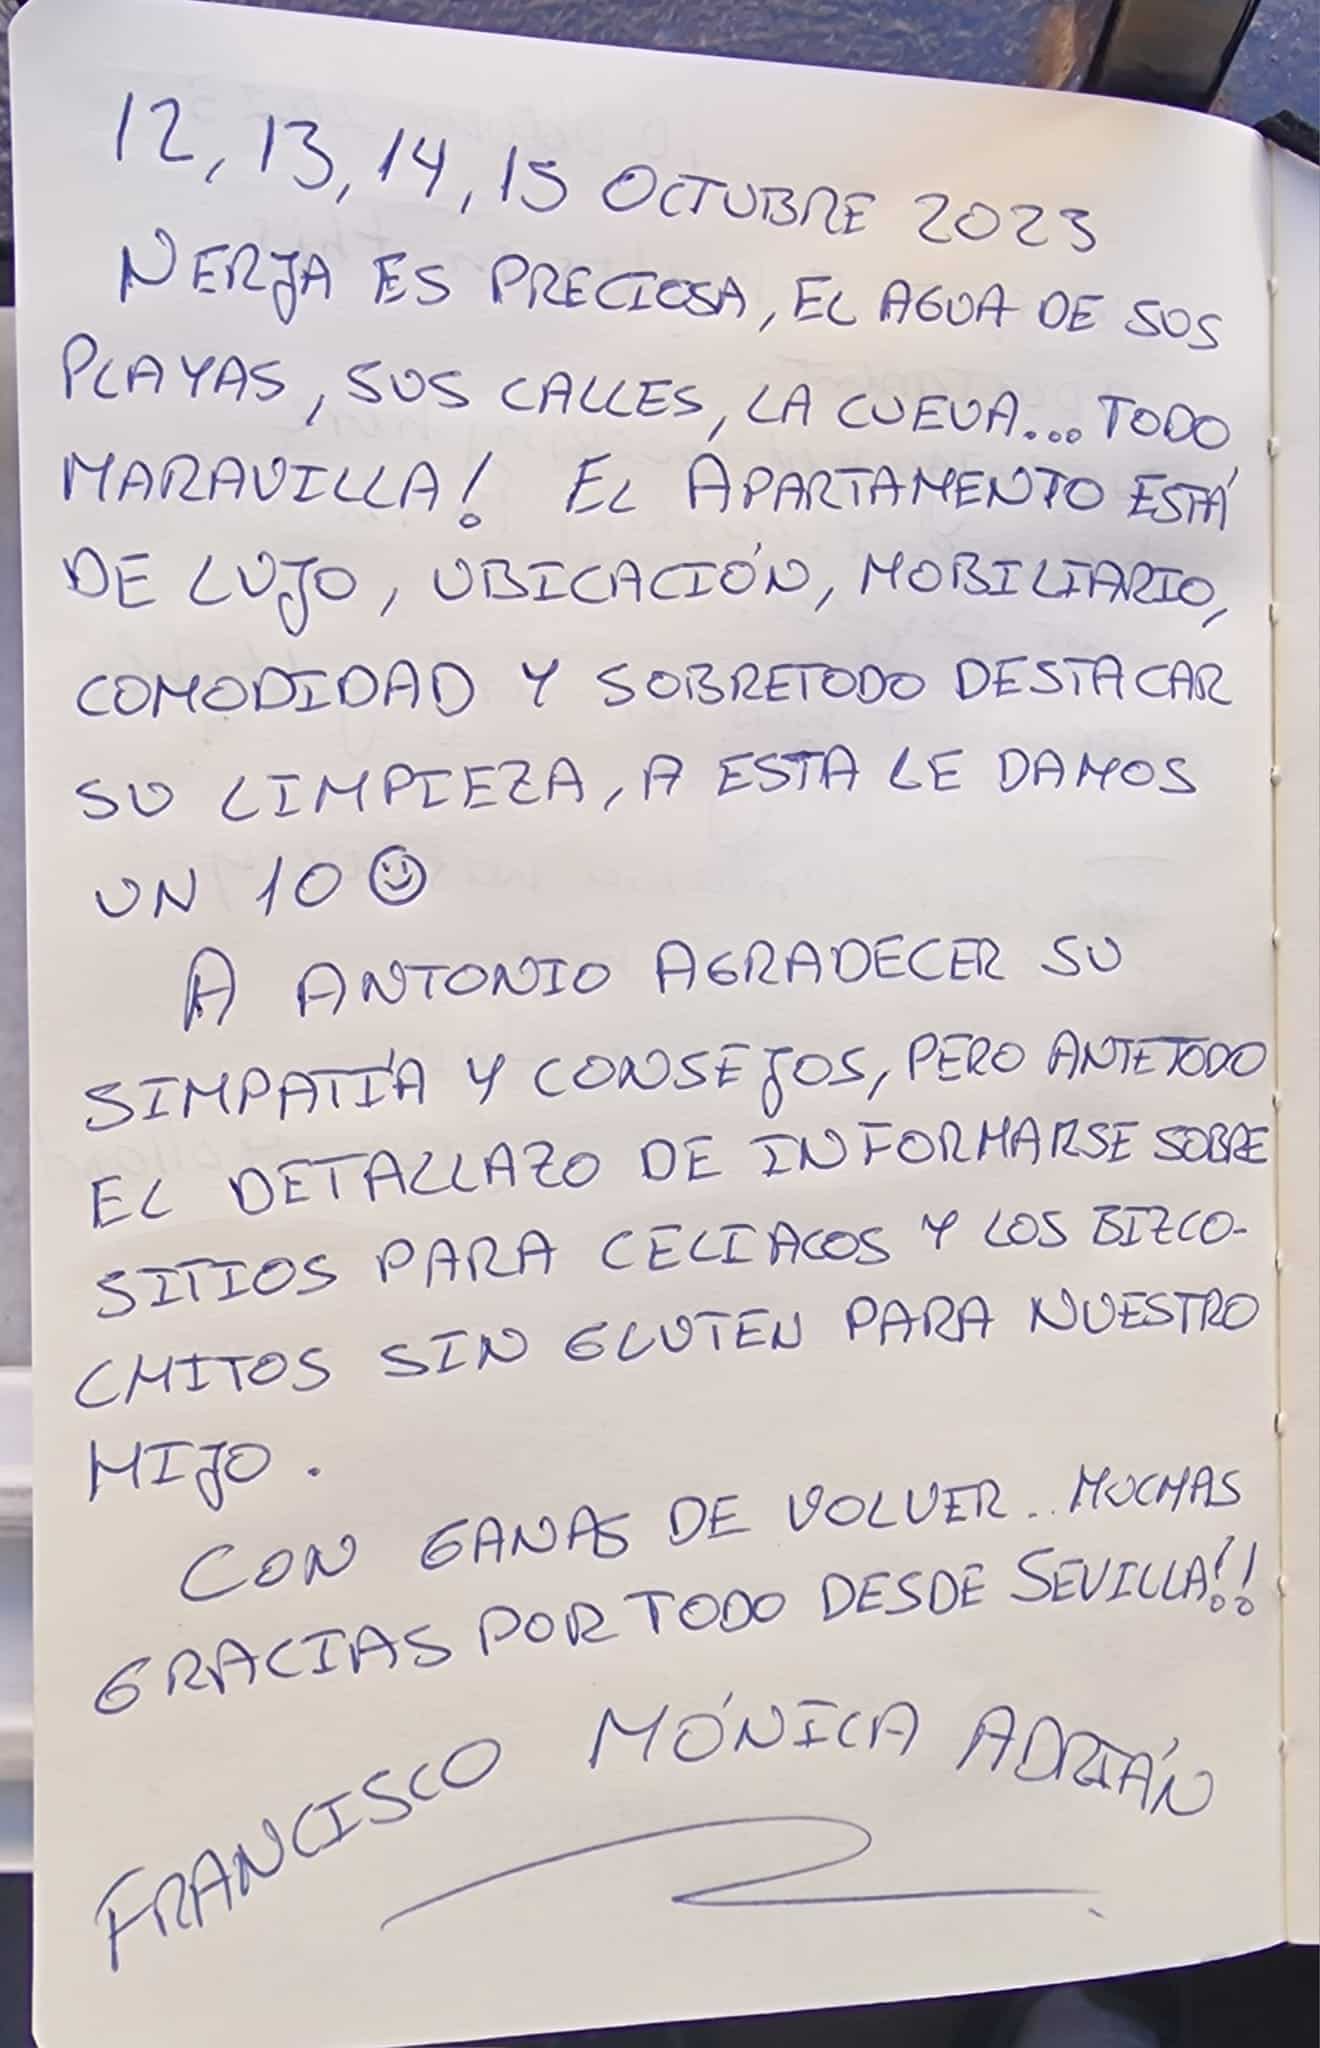 12, 13, 14, 15 OCTUBRE 2023
NERJA ES PRECIOSA, EL AGUA DE SUS
PLAYAS, SUS CALLES, LA CUEVA... TODO
MARAVILLA! EL APARTAMENTO ESTÁ
DE LUJO, UBICACIÓN, MOBILIARIO,
COMODIDAD Y SOBRETODO DESTACAR
SU LIMPIEZA, A ESTA LE DAMOS
UN 10 ☺
A ANTONIO AGRADECER SU
SIMPATÍA Y CONSEJOS, PERO ANTETODO
EL DETALLAZO DE INFORMARSE SOBRE
SITIOS PARA CELIACOS Y LOS BIZCO-
CHITOS SIN GLUTEN PARA NUESTRO
HIJO.
CON GANAS DE VOLVER... MUCHAS
GRACIAS POR TODO DESDE SEVILLA!!
FRANCISCO MÓNICA ADRIÁN